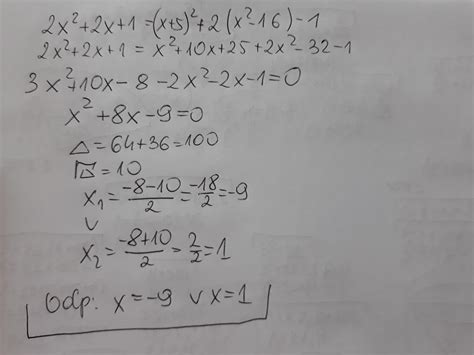 2x²+2x+1=(x+5)²+2(x²-16)-1
2x²+2x+1=x²+10x+25+2x²-32-1
3x²+10x-8-2x²-2x-1=0
x²+8x-9=0
△=64+36=100
√△=10
x₁=\frac{-8-10}{2}=\frac{-18}{2}=-9
∨
x₂=\frac{-8+10}{2}=\frac{2}{2}=1
Odp. x=-9 ∨ x=1